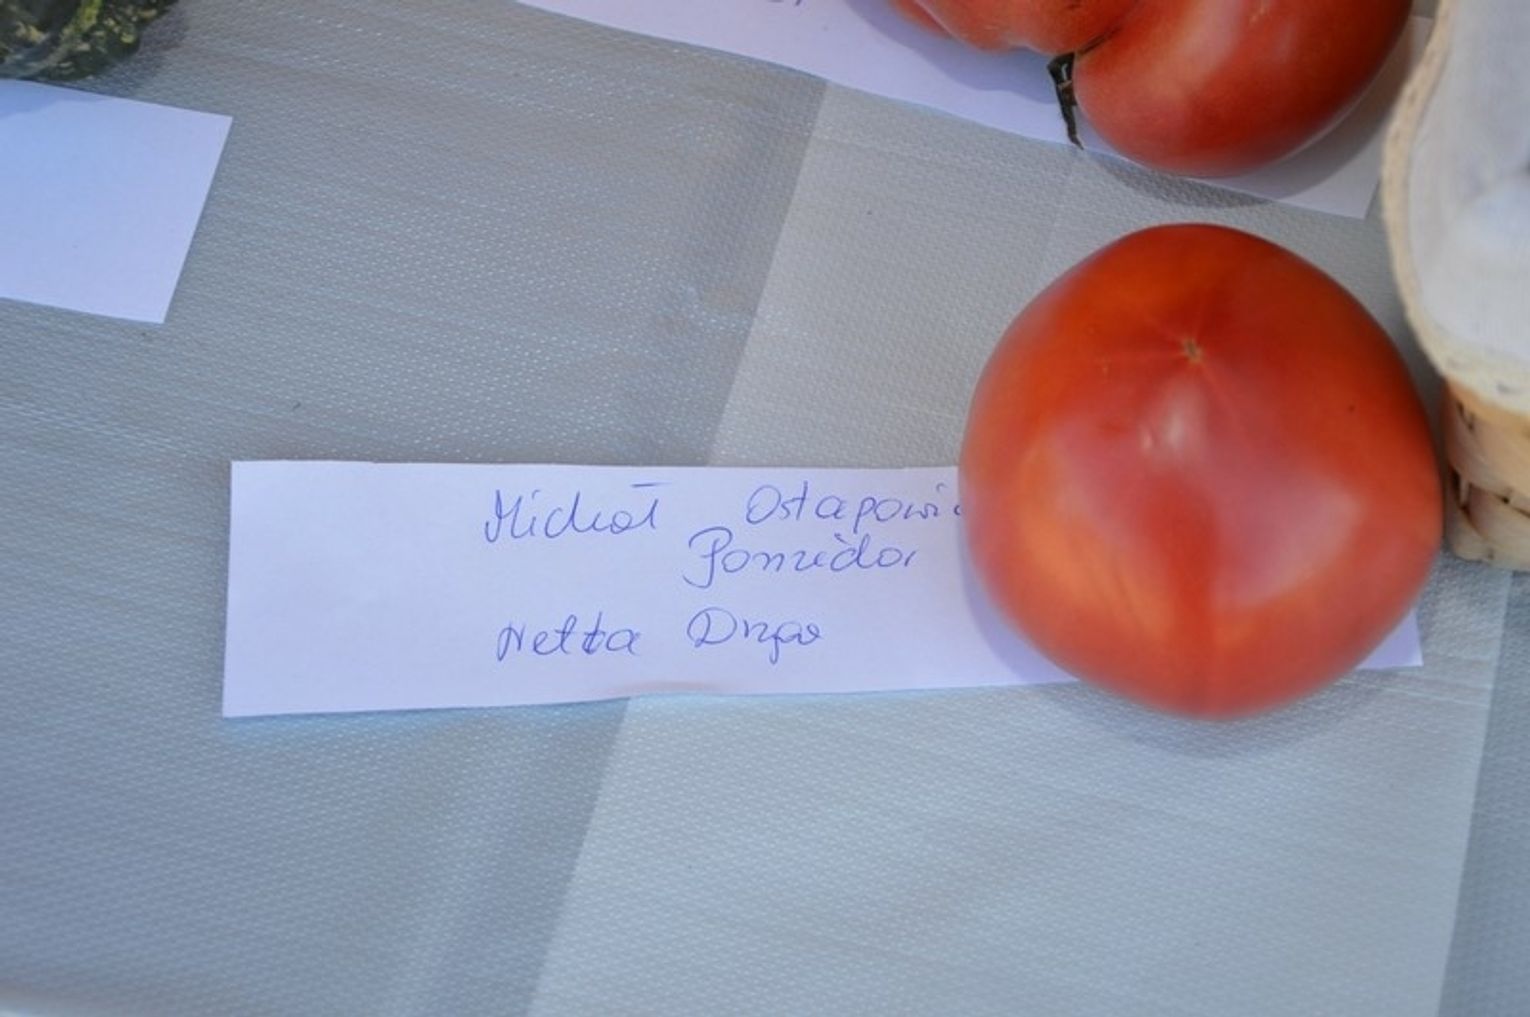 Michał Ostapowic
Pomidor
Netta Druga